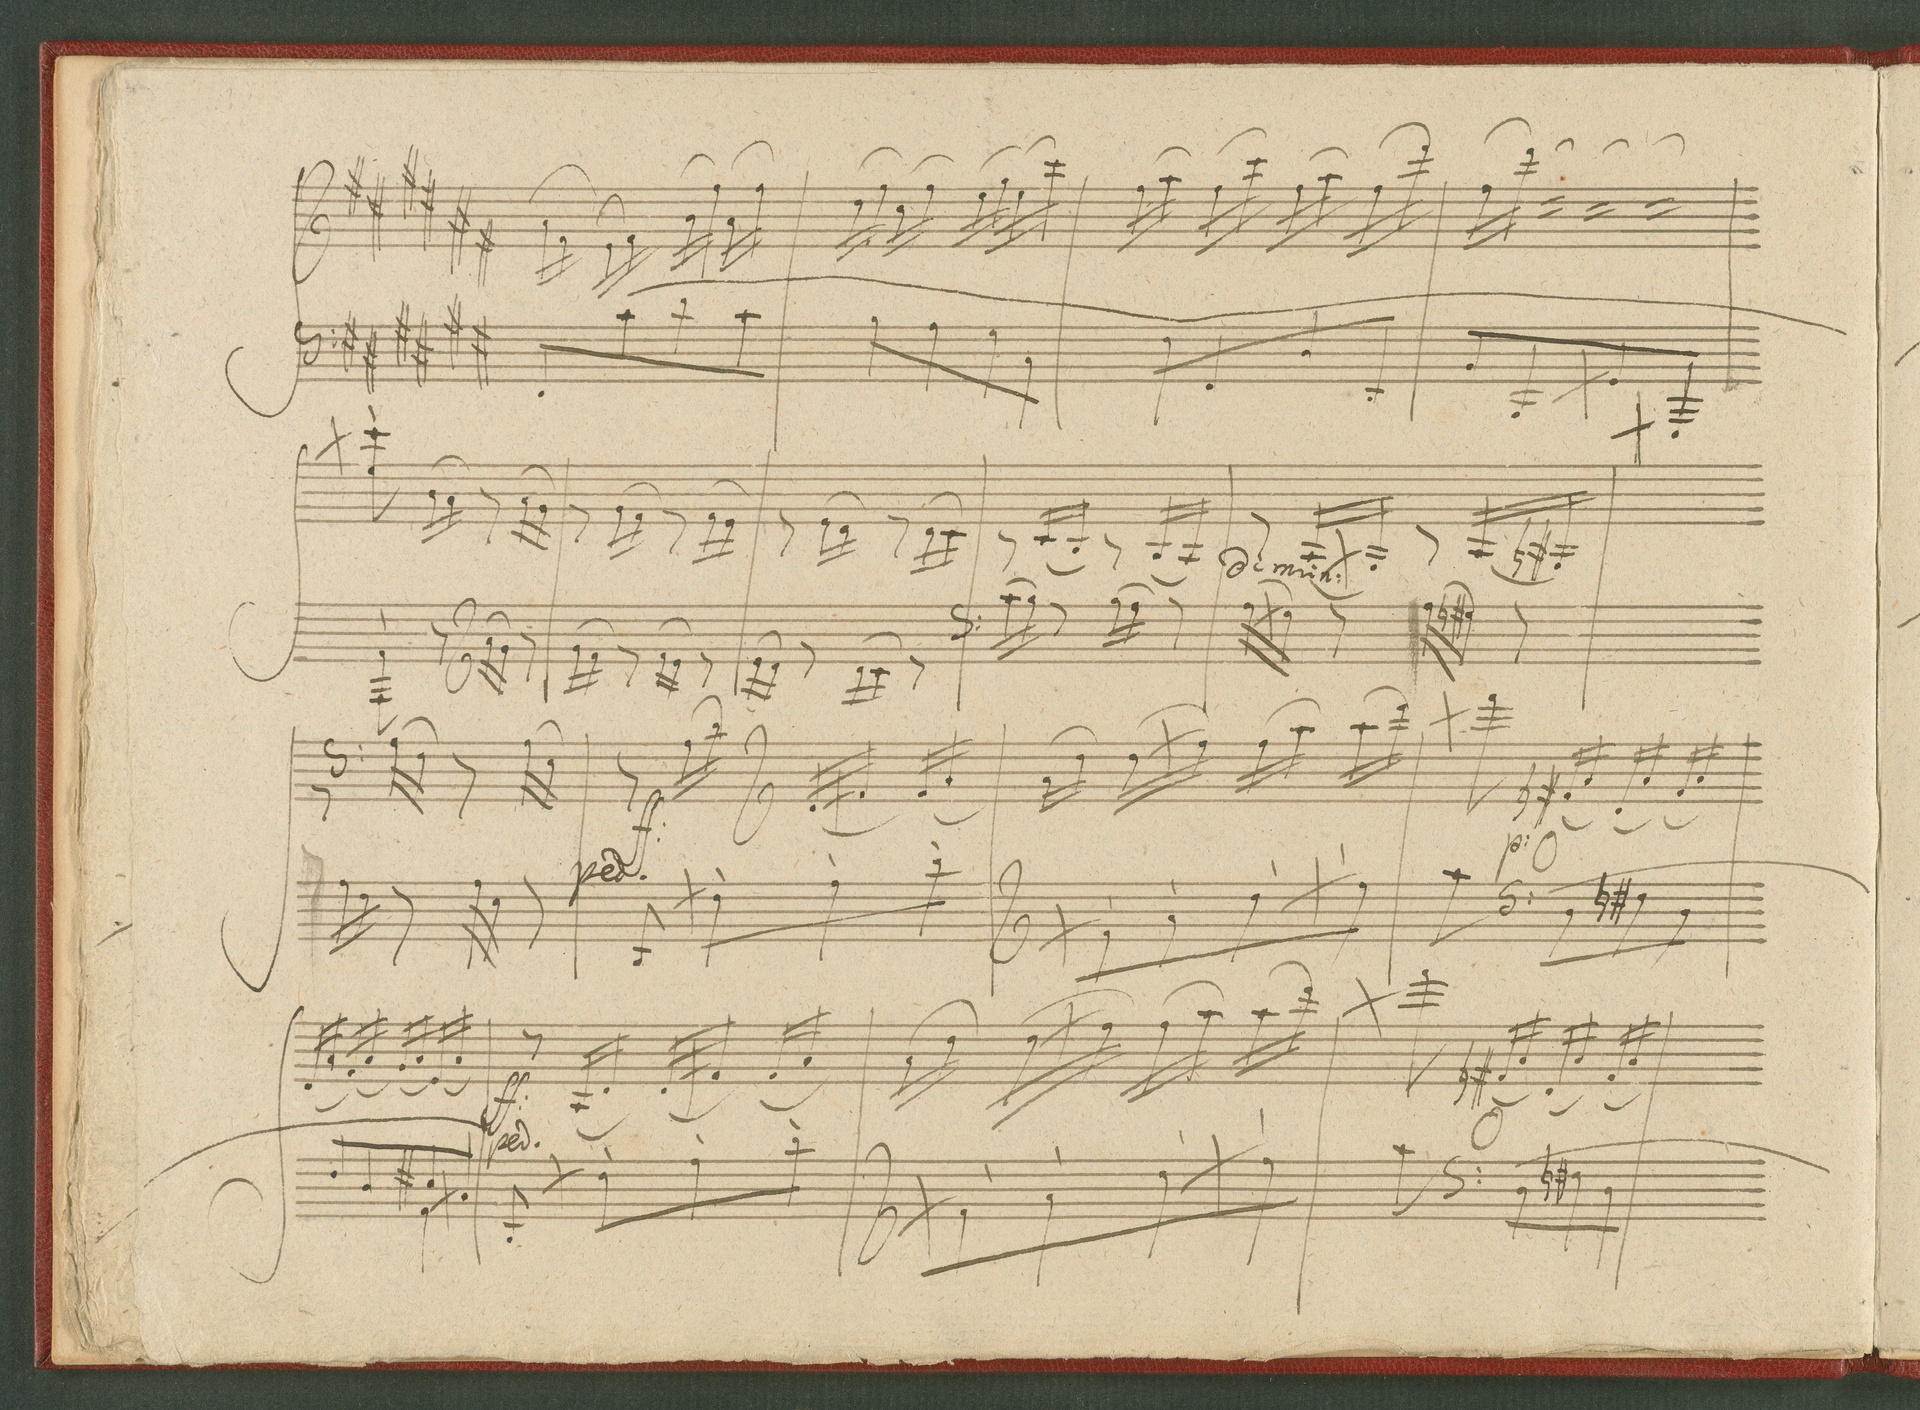 dimin:
f:
ped.
p: O
ff:
ped.
O